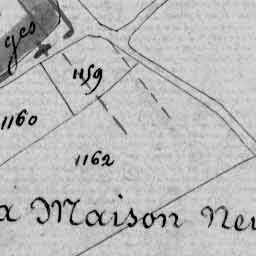 ges
1159
1160
1162
a Maison Neu